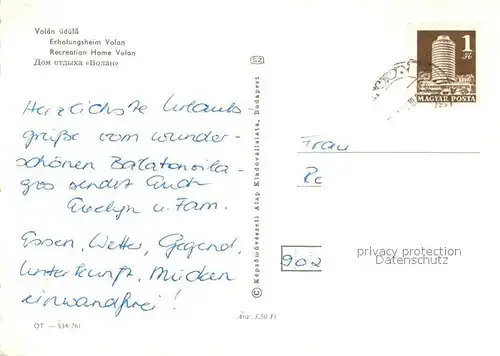 Volán üdülő
Erholungsheim Volan
Recreation Home Volan
Дом отдыха «Волан»
SZ
1 Ft
MAGYAR POSTA
Herzlichste Urlaubs-
grüße vom wunder-
schönen Balatonvila-
gos sendet Euch
Evelyn u. Fam.
Essen, Wetter, Gegend,
Unterkunft, Mücken
einwandfrei!
Frau
Re
902
privacy protection
Datenschutz
© Képzőművészeti Alap Kiadóvállalata, Budapest
OT — 534/761
Ára: 3.50 Ft